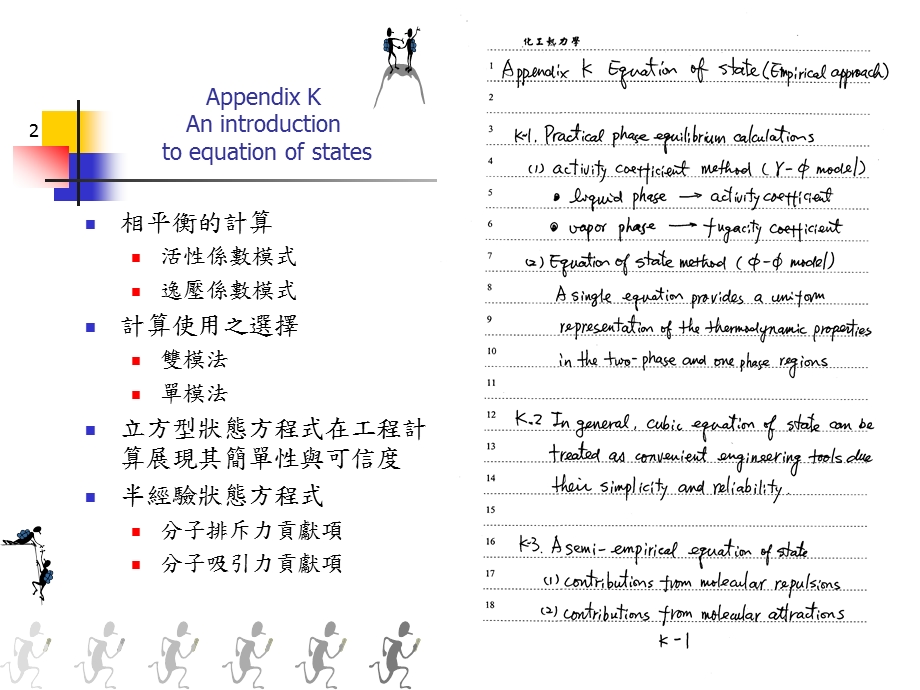 Appendix K
An introduction
to equation of states
2
相平衡的計算
活性係數模式
逸壓係數模式
計算使用之選擇
雙模法
單模法
立方型狀態方程式在工程計
算展現其簡單性與可信度
半經驗狀態方程式
分子排斥力貢獻項
分子吸引力貢獻項
化工熱力學
1 Appendix K Equation of state (Empirical approach)
2
3 K-1. Practical phase equilibrium calculations
4 (1) activity coefficient method (γ-ϕ model)
5 • liquid phase → activity coefficient
6 • vapor phase → fugacity coefficient
7 (2) Equation of state method (ϕ-ϕ model)
8 A single equation provides a uniform
9 representation of the thermodynamic properties
10 in the two-phase and one phase regions
11
12 K-2 In general, cubic equation of state can be
13 treated as convenient engineering tools due
14 their simplicity and reliability.
15
16 K-3. A semi-empirical equation of state
17 (1) contributions from molecular repulsions
18 (2) contributions from molecular attractions
K-1